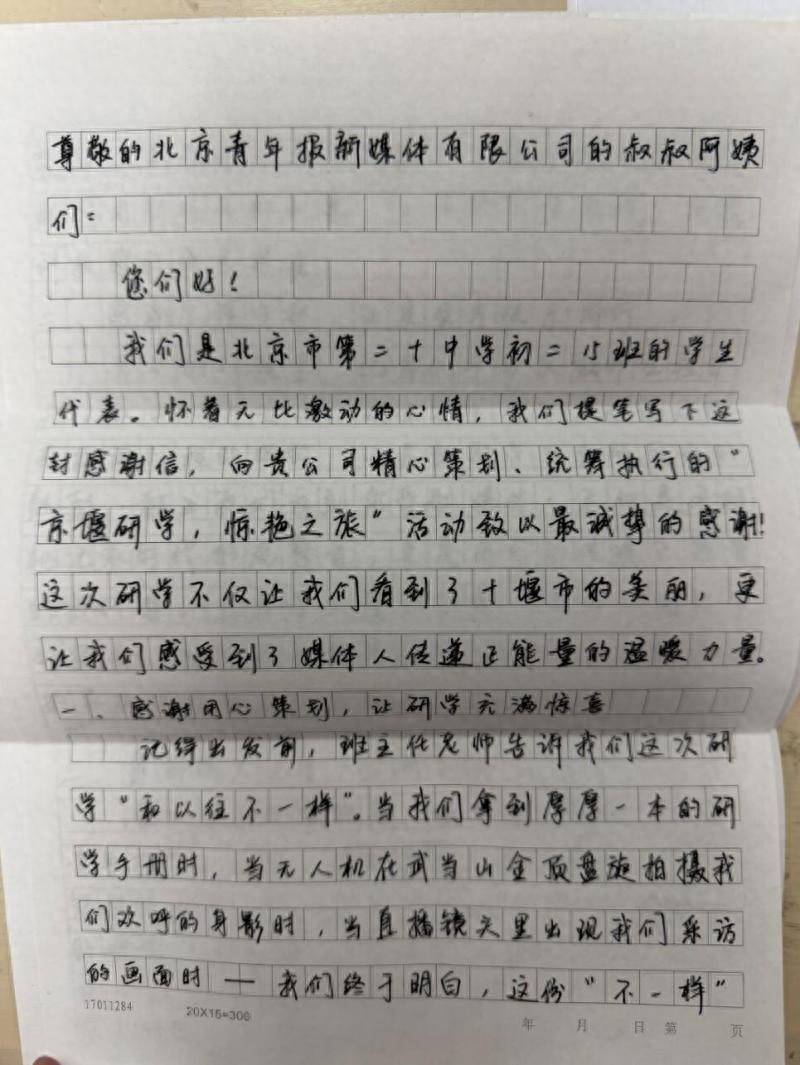 尊敬的北京青年报新媒体有限公司的叔叔阿姨
们：
您们好！
我们是北京市第二十中学初二15班的学生
代表。怀着无比激动的心情，我们提笔写下这
封感谢信，向贵公司精心策划、统筹执行的“
京堰研学，惊艳之旅”活动致以最诚挚的感谢！
这次研学不仅让我们看到了十堰市的美丽，更
让我们感受到了媒体人传递正能量的温暖力量。
一、感谢用心策划，让研学充满惊喜
记得出发前，班主任老师告诉我们这次研
学“和以往不一样”。当我们拿到厚厚一本的研
学手册时，当无人机在武当山金顶盘旋拍摄我
们欢呼的身影时，当直播镜头里出现我们采访
的画面时——我们终于明白，这份“不一样”
17011284
20X15=300
年 月 日 第 页